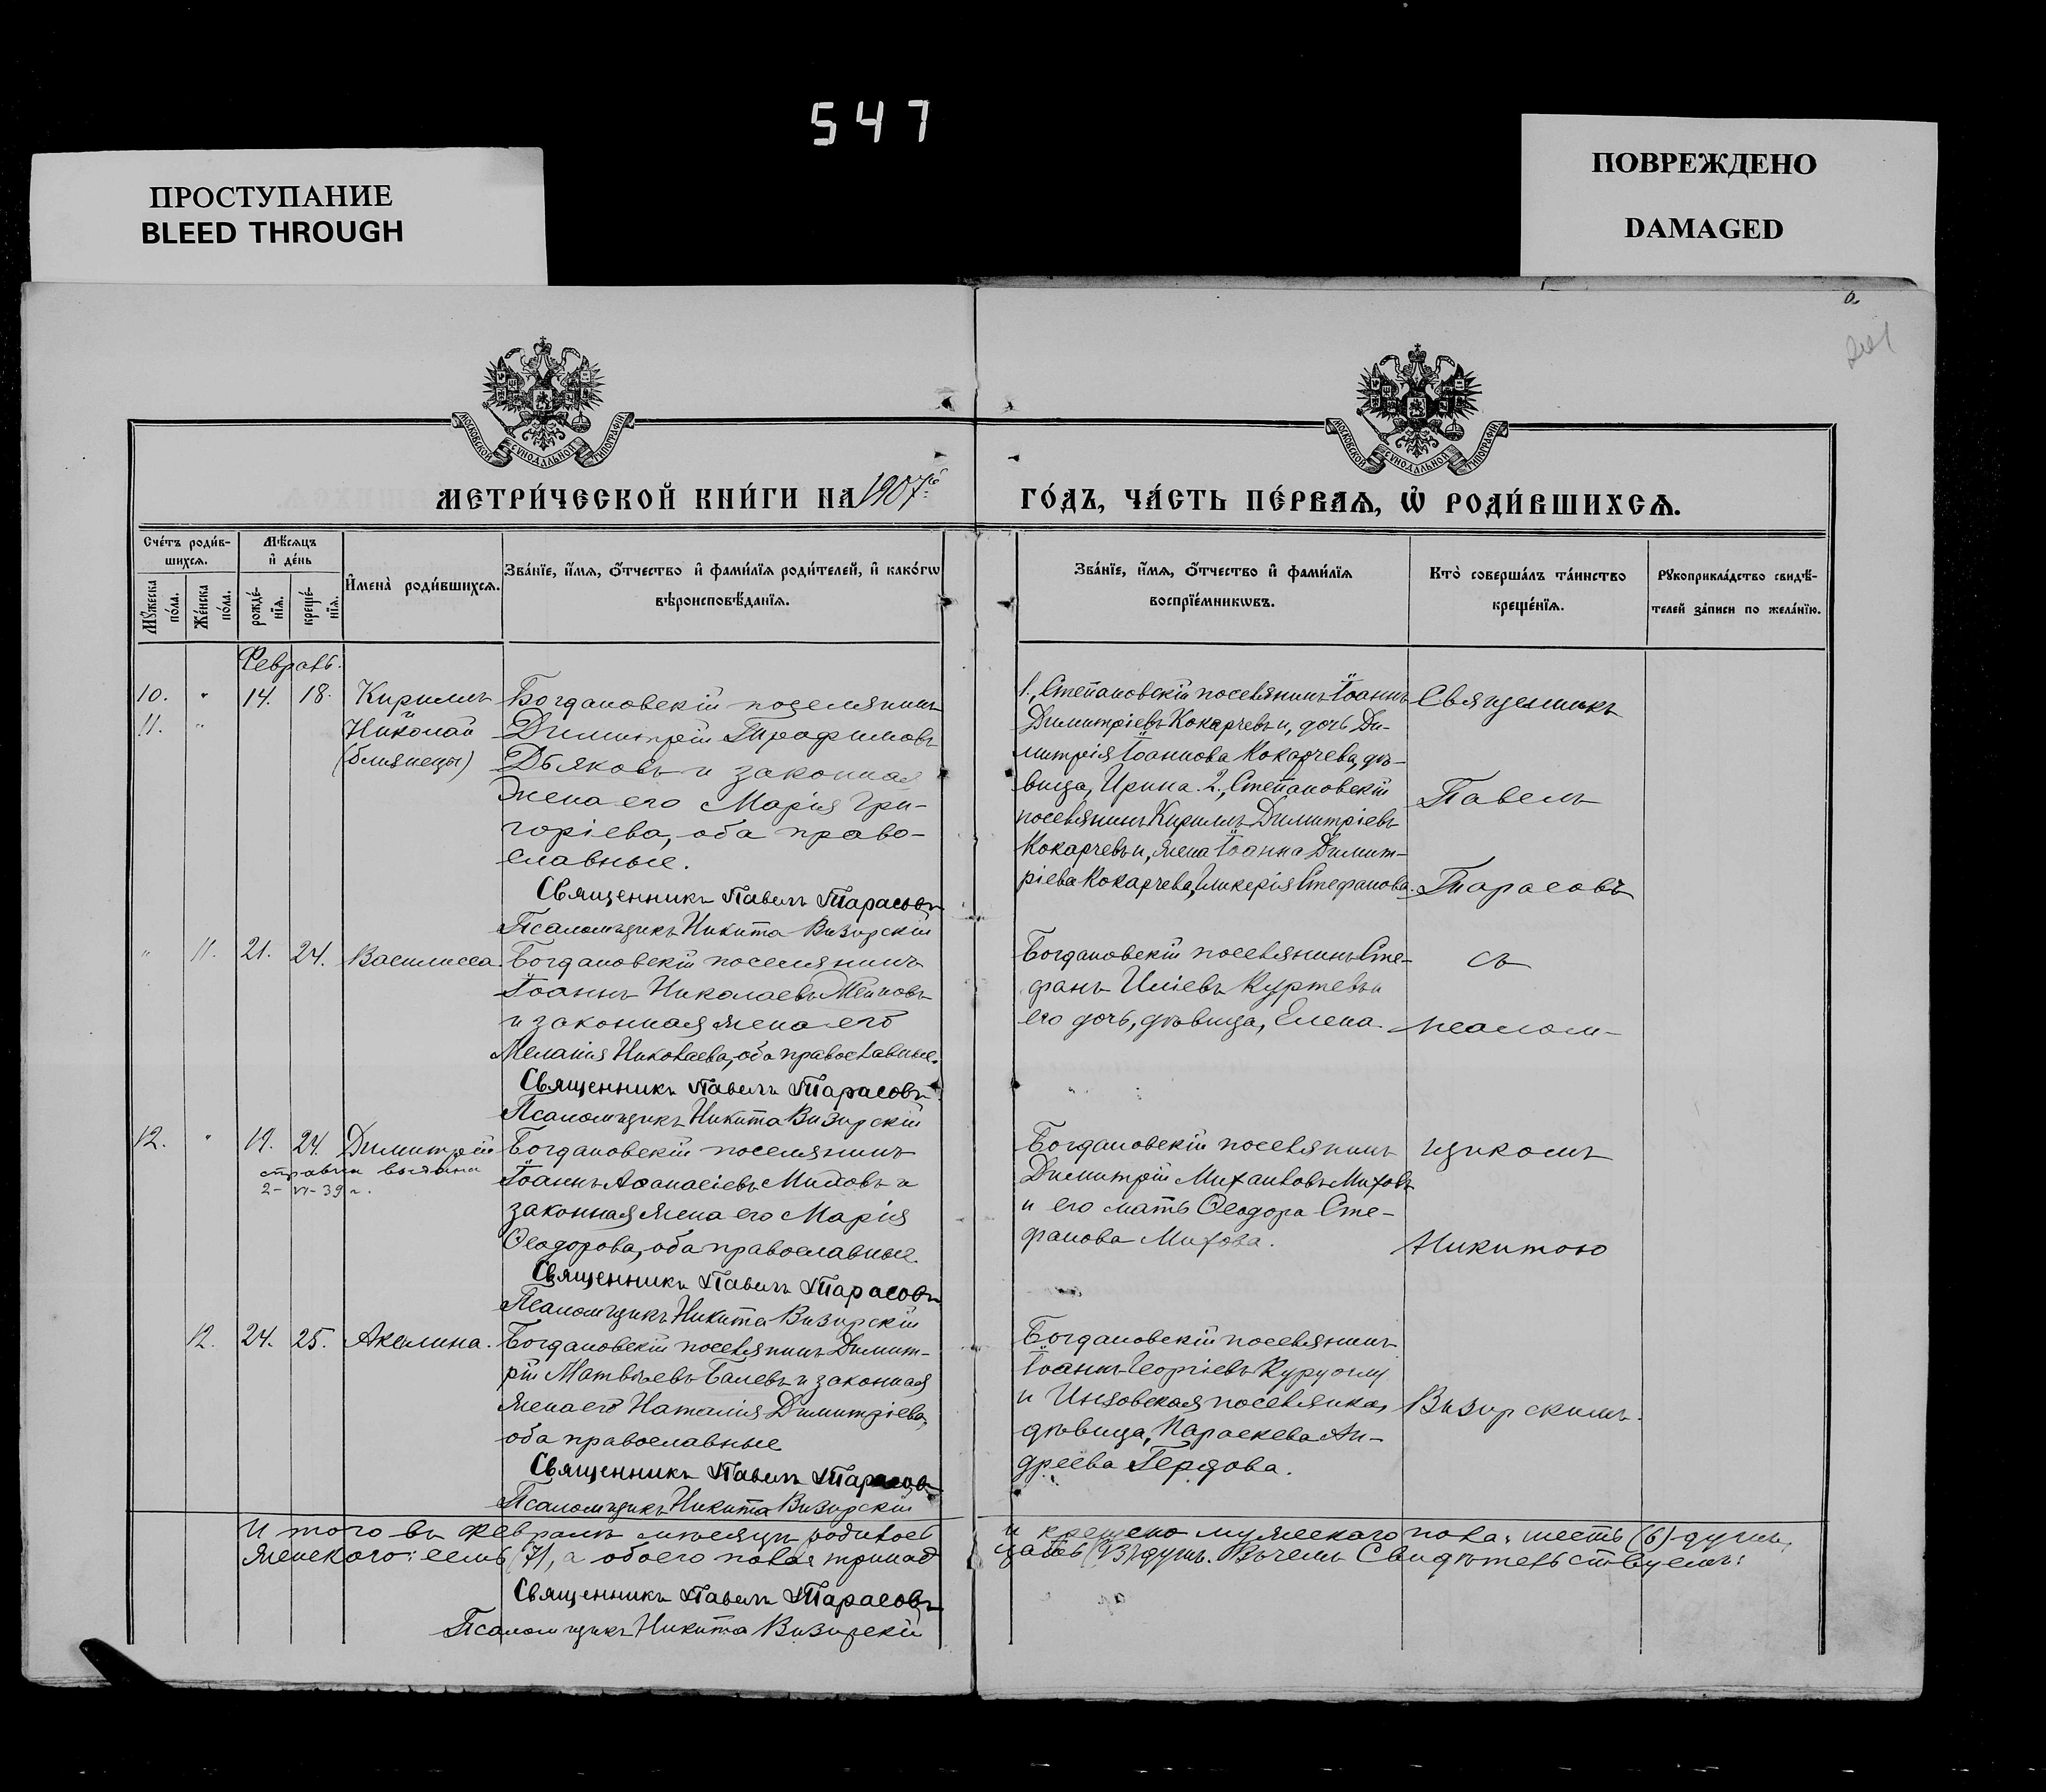 547
ПРОСТУПАНИЕ
BLEED THROUGH
ПОВРЕЖДЕНО
DAMAGED
МОСКОВСКОЙ СУНОДАЛЬНОЙ ТИПОГРАФІИ
МОСКОВСКОЙ СУНОДАЛЬНОЙ ТИПОГРАФІИ
МЕТРИ́ЧЕСКОЙ КНИ́ГИ НА 1907й
ГО́ДЪ, ЧА́СТЬ ПЕ́РВАѦ, Ѡ҆ РОДИ́ВШИХСѦ.
Сче́тъ роди́в-
шихсѧ.
Мꙋ́жеска по́ла.
Же́нска по́ла.
Мѣ́сѧцъ
и҆ де́нь
рожде́-
нїѧ.
креще́-
нїѧ.
И҆мена̀ роди́вшихсѧ.
Зва́нїе, и҆́мѧ, ѻ҆́тчество и҆ фами́лїѧ роди́телей, и҆ како́гѡ
вѣроисповѣ́данїѧ.
Зва́нїе, и҆́мѧ, ѻ҆́тчество и҆ фами́лїѧ
воспрїе́мникѡвъ.
Кто̀ соверша́лъ та́инство
креще́нїѧ.
Рꙋкоприкла́дство свидѣ́-
телей за́писи по жела́нїю.
Февраль.
10. " 14. 18. Кириллъ
и
11. " Николай
(близнецы)
Богдановскій поселянинъ
Димитрій Трофимовъ
Дьяковъ и законная
жена его Марія Гри-
горіева, оба право-
славные.
Священникъ Павелъ Тарасовъ
Псаломщикъ Никита Визирскій
1., Степановскій поселянинъ Іоаннъ
Димитріевъ Кокарчевъ и, дочь Ди-
митрія Іоаннова Кокарчева, дѣ-
вица, Ирина. 2., Степановскій
поселянинъ Кириллъ Димитріевъ
Кокарчевъ и, жена Іоанна Димит-
ріева Кокарчева, Гликерія Стефанова.
Священникъ
Павелъ
Тарасовъ
" 11. 21. 24. Василисса.
Богдановскій поселянинъ
Іоаннъ Николаевъ
и законная жена его
Меланія Николаева, оба православные.
Священникъ Павелъ Тарасовъ
Псаломщикъ Никита Визирскій
Богдановскій поселянинъ Сте-
фанъ Иліевъ Куртевъ и
его дочь, дѣвица, Елена.
съ
псалом-
12. " 19. 24. Димитрій
справка выдана
2-VI-39 г.
Богдановскій поселянинъ
Іоаннъ Аѳанасіевъ и
законная жена его Марія
Ѳеодорова, оба православные.
Священникъ Павелъ Тарасовъ
Псаломщикъ Никита Визирскій
Богдановскій поселянинъ
Димитрій Михаиловъ Миховъ
и его мать Ѳеодора Сте-
фанова Михова.
щикомъ
Никитою
12. 24. 25. Акилина.
Богдановскій поселянинъ Димит-
рій Матвѣевъ Балевъ и законная
жена его Наталія Димитріева,
оба православные
Священникъ Павелъ Тарасовъ
Псаломщикъ Никита Визирскій
Богдановскій поселянинъ
Іоаннъ Георгіевъ
и Инзовская поселянка,
дѣвица, Параскева Ан-
дреева Гердова.
Визирскимъ.
Итого въ февралѣ мѣсяцѣ родилось и крещено мужескаго пола: шесть (6) душъ,
женскаго: семь (7), а обоего пола тринадцать (13) душъ. Въ чемъ Свидѣтельствуемъ:
Священникъ Павелъ Тарасовъ
Псаломщикъ Никита Визирскій